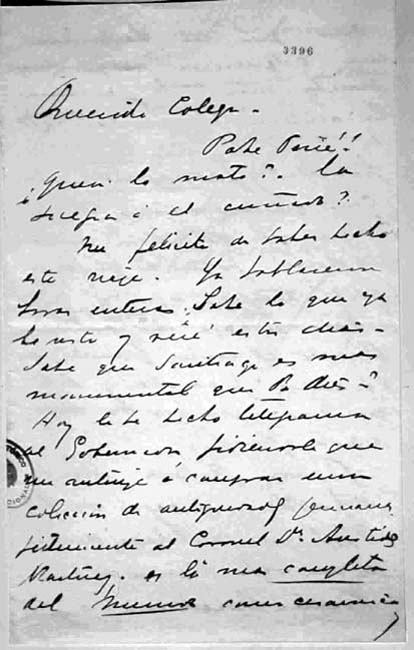 3396
Querido Colega -
¿Quien lo mato? La
suegra ó el cuñado?
Me felicito de haber hecho
este viaje. Ya hablaremos
horas enteras. Sabe lo que ya
he visto y estos dias -
Sabe que Santiago es mas
monumental que Bs Aires?
Hoy le he hecho telegrama
al Gobernador pidiendole que
me autorize á comprar una
coleccion de antiguedades peruanas
perteneciente al Coronel Dr.
es la mas completa
del Mundo como ceramica,